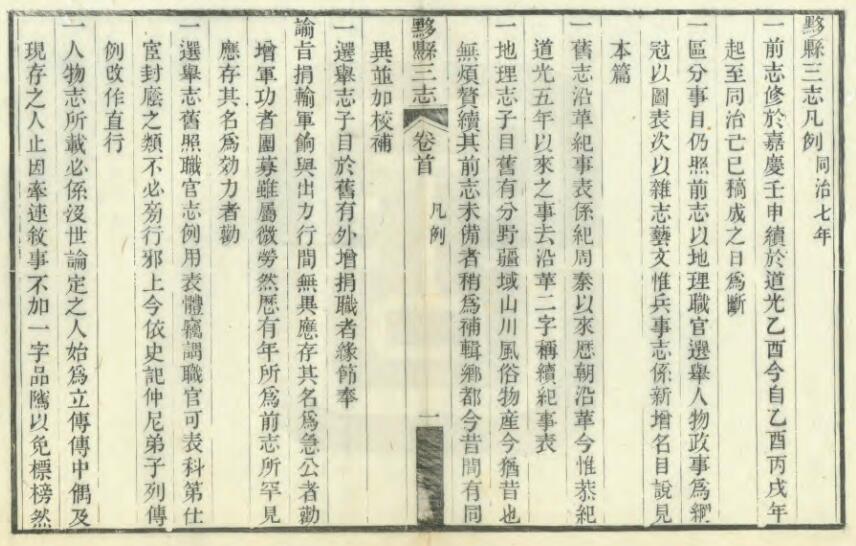 黟縣三志凡例 同治七年
一前志修於嘉慶壬申續於道光乙酉今自乙酉丙戌年
起至同治己巳稿成之日爲斷
一區分事目仍照前志以地理職官選舉人物政事爲綱
冠以圖表次以雜志藝文惟兵事志係新增名目說見
本篇
一舊志沿革紀事表係紀周秦以來歷朝沿革今惟恭紀
道光五年以來之事去沿革二字稱續紀事表
一地理志子目舊有分野疆域山川風俗物產今猶昔也
無煩贅續其前志未備者稍爲補輯鄉都今昔間有同
黟縣三志 卷首 凡例 一
異並加校補
一選舉志子目於舊有外增捐職者緣節奉
諭旨捐輸軍餉與出力行間無異應存其名爲急公者勸
增軍功者團募雖屬微勞然歷有年所爲前志所罕見
應存其名爲効力者勸
一選舉志舊照職官志例用表體竊謂職官可表科第仕
宦封廕之類不必旁行邪上今依史記仲尼弟子列傳
例改作直行
一人物志所載必係沒世論定之人始爲立傳傳中偶及
現存之人止因牽連敘事不加一字品隲以免標榜然